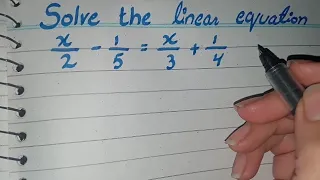 Solve the linear equation
x/2 - 1/5 = x/3 + 1/4